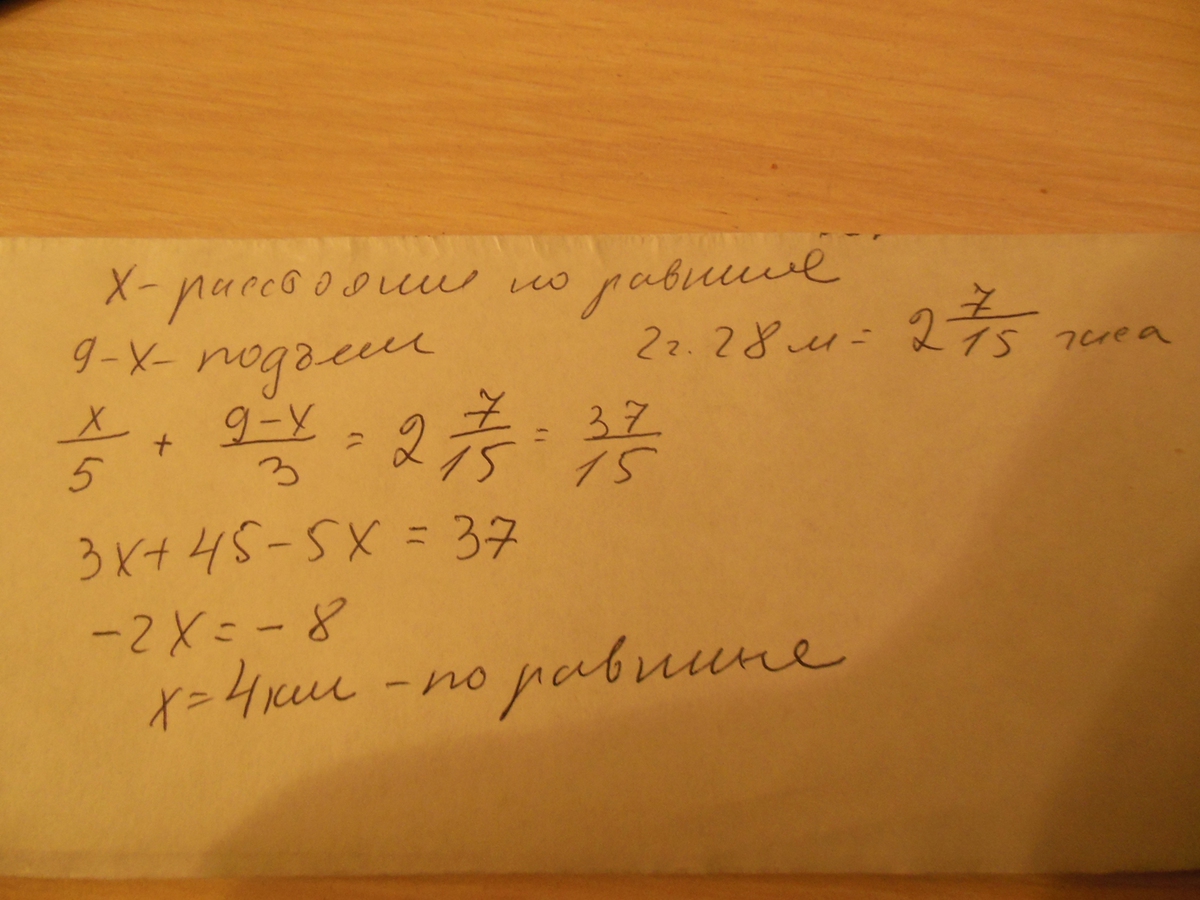 x - расстояние по равнине
9-x - подъем
2 ч. 28 м = 2 7/15 часа
x/5 + 9-x/3 = 2 7/15 = 37/15
3x + 45 - 5x = 37
-2x = -8
x = 4 км - по равнине